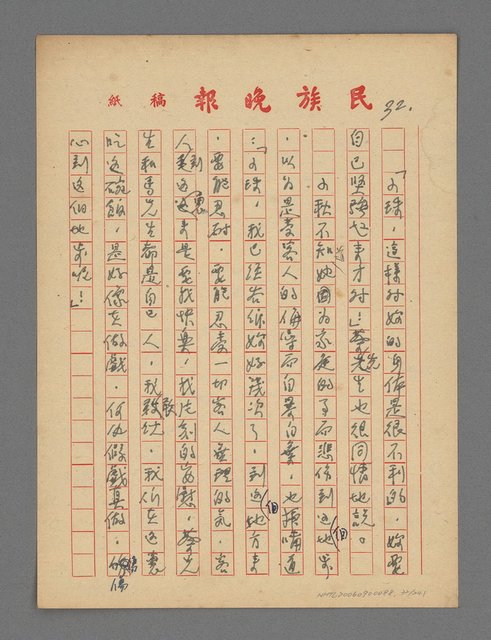 民族晚報 稿紙
32.
「小瑛，這樣對妳的身体是很不利的，妳要
自已堅強起來才对！」蔡先生也很同情地說。
小秋不知她因為家庭的事而悲伤到這地步
，以為是受客人的侮辱而自暴自棄，也搶嘴道
：「小瑛，我已經告訴妳好幾次了，到這地方來
，要能忍耐，要能忍受一切客人無理的氣，客
人到這裏來是要找快樂，找片刻的安慰，蔡先
生和馬先生都是自己人，我敢說，我们在這裏
吃這碗飯，是好像在做戲，何必假戲真做，傷
心到這個地步呢！」
NMTL20060900098